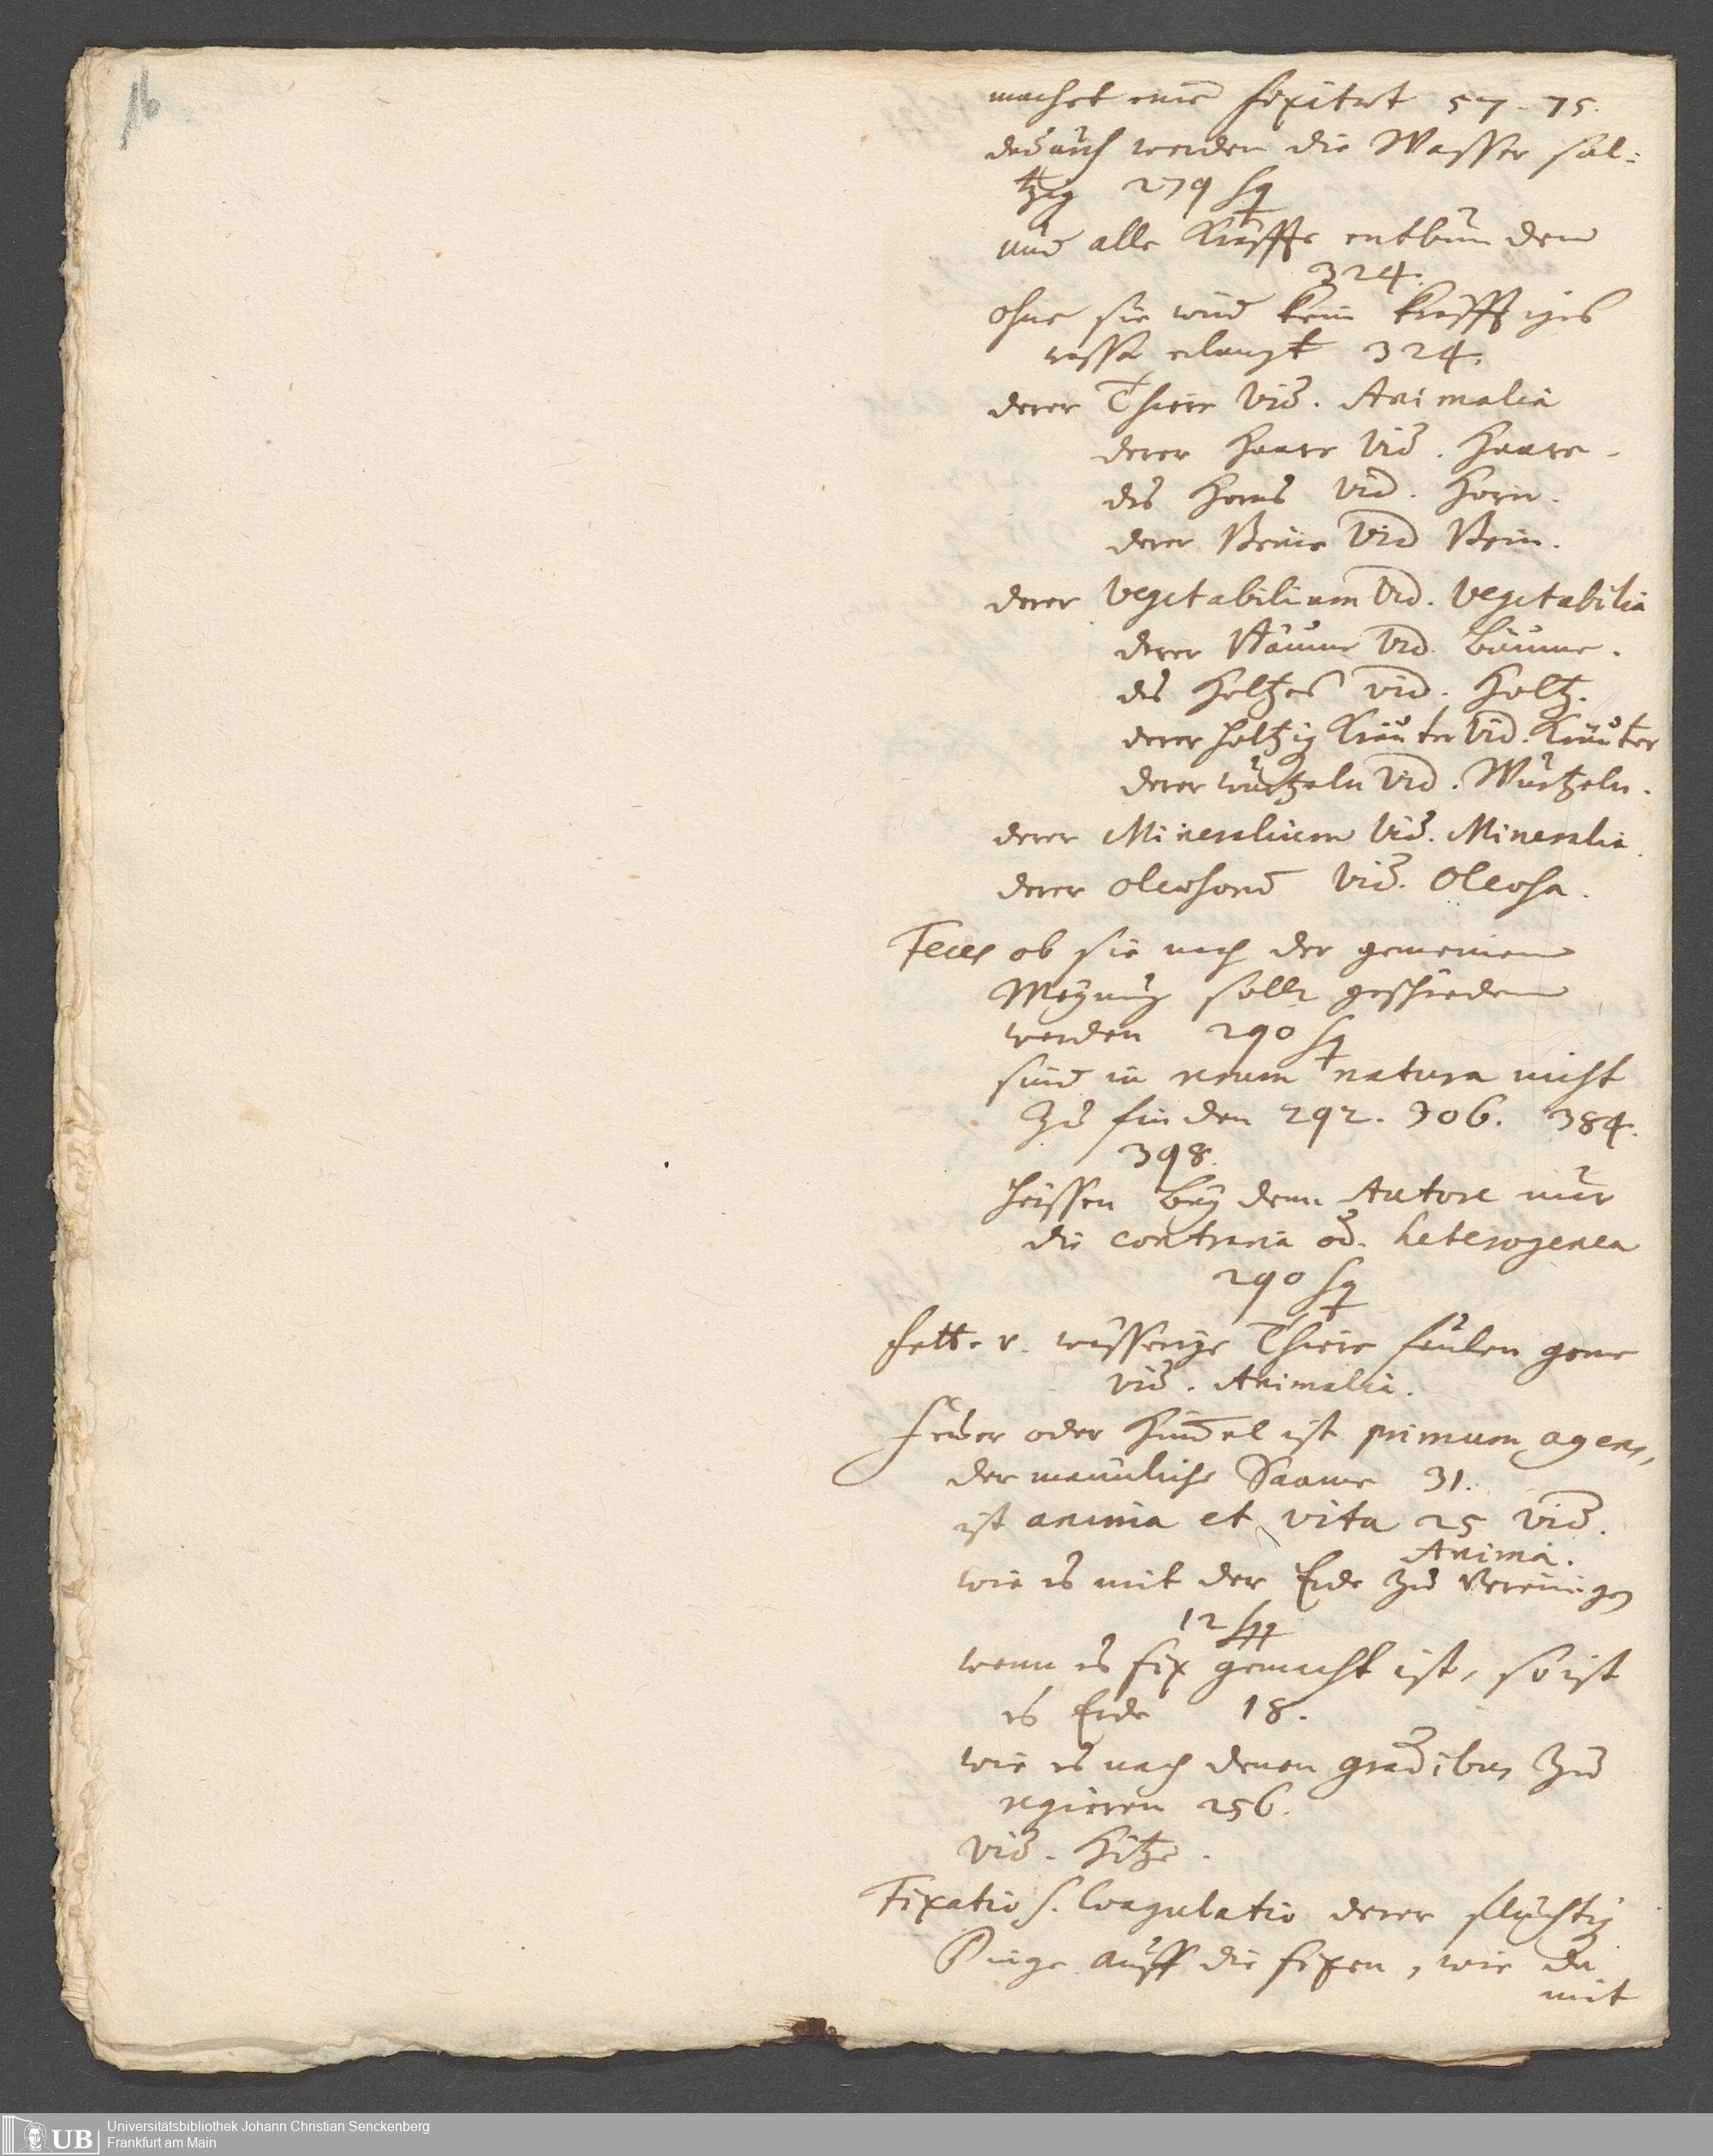 16
machet eine fixitet 57. 75.
dadurch werden die Wasser sal=
tzig 279 sq
und alle Kräffte entbunden
324.
ohne sie wird kein kräfftiges
wasser erlangt 324.
derer Thiere vid. Animalia
derer Haare vid. Haare.
des Horns vid. Horn.
derer Beine vid Bein.
derer Vegetabilium vid. Vegetabilia
derer Bäume vid. Bäume.
des Holtzes vid. Holtz.
derer holtzig Kräuter vid. Kräuter
derer wurtzeln vid. Wurtzeln.
derer Mineralium vid. Mineralia.
derer oleosorum vid. Oleosa.
Feces ob sie nach der gemeinen
Meynung sollen geschieden
werden 290 sq
sind in rerum natura nicht
zu finden 292. 306. 384.
398.
heissen bey dem Autore nur
die contraria od. heterogenea
290 sq
Fette v. wässerige Thiere faulen gerne
vid. Animalia.
Feuer oder Himmel ist primum agens,
der männliche Saame 31.
ist anima et vita 25 vid.
Anima.
wie es mit der Erde zu vereinigen
12 sqq
wenn es fix gemacht ist, so ist
es Erde 18.
wie es nach denen gradibus zu
regieren 256.
vid. Hitze.
Fixatio s. Coagulatio derer flüchtig
Dinge auff die fixen, wie da
mit
UB
Universitätsbibliothek Johann Christian Senckenberg
Frankfurt am Main